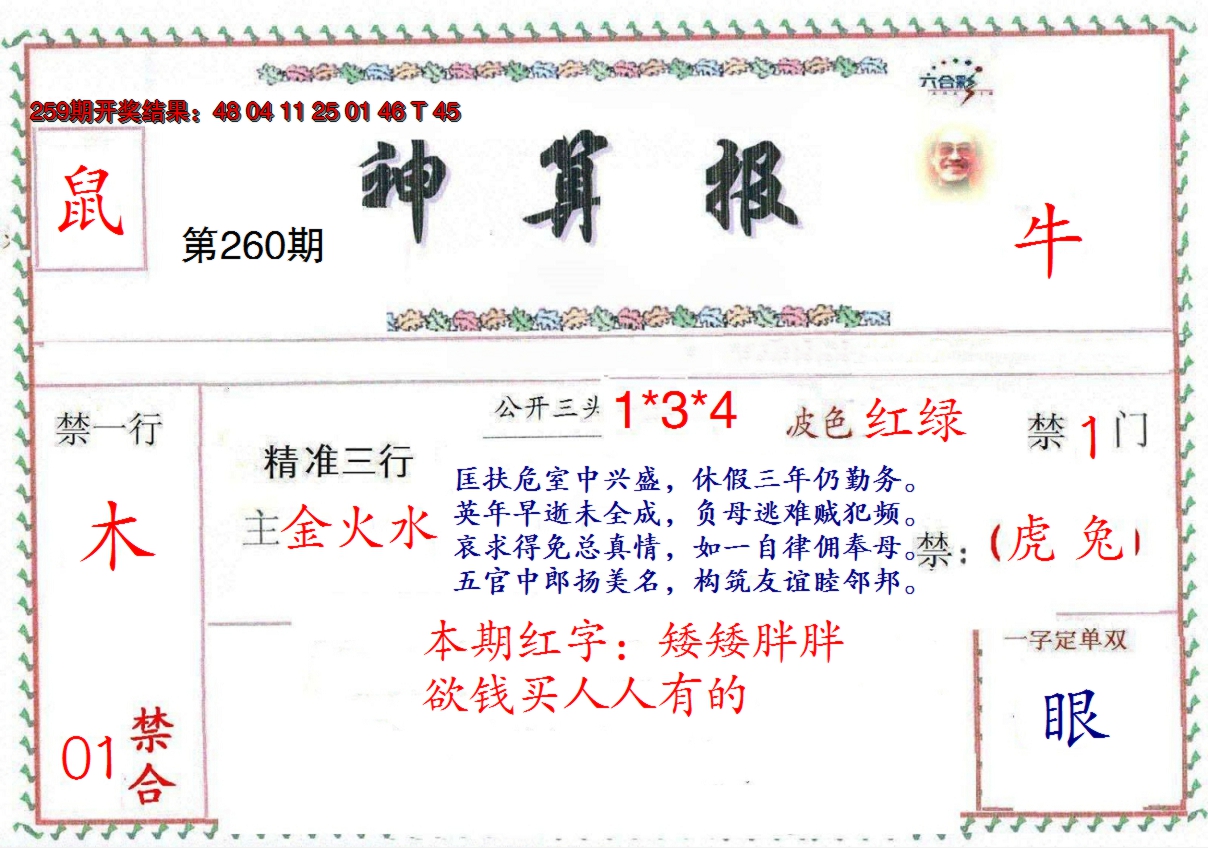 六合彩
259期开奖结果：48 04 11 25 01 46 T 45
神算报
鼠
第260期
牛
公开三头 1*3*4
波色 红绿
禁一行
木
精准三行
主金火水
禁 1 门
匡扶危室中兴盛，休假三年仍勤务。
英年早逝未全成，负母逃难贼犯频。
哀求得免总真情，如一自律佣奉母。
五官中郎扬美名，构筑友谊睦邻邦。
禁：（虎 兔）
本期红字：矮矮胖胖
欲钱买人人有的
一字定单双
眼
01 禁合